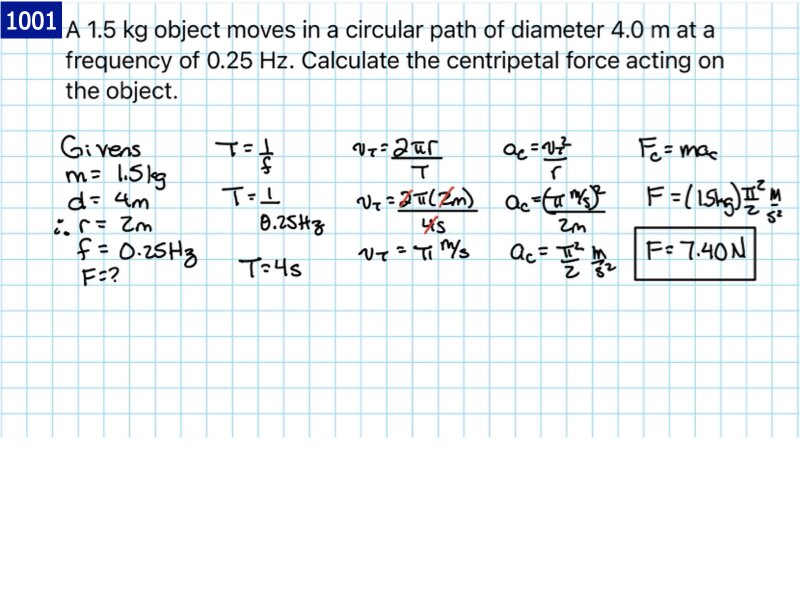 1001
A 1.5 kg object moves in a circular path of diameter 4.0 m at a
frequency of 0.25 Hz. Calculate the centripetal force acting on
the object.
Givens
m = 1.5kg
d = 4m
∴ r = 2m
f = 0.25Hz
F = ?
T = 1/f
T = 1/0.25Hz
T = 4s
v_T = 2πr/T
v_T = 2π(2m)/4s
v_T = π m/s
a_c = v_T²/r
a_c = (π m/s)²/2m
a_c = π²/2 m/s²
F_c = ma_c
F = (1.5kg) π²/2 m/s²
F = 7.40N